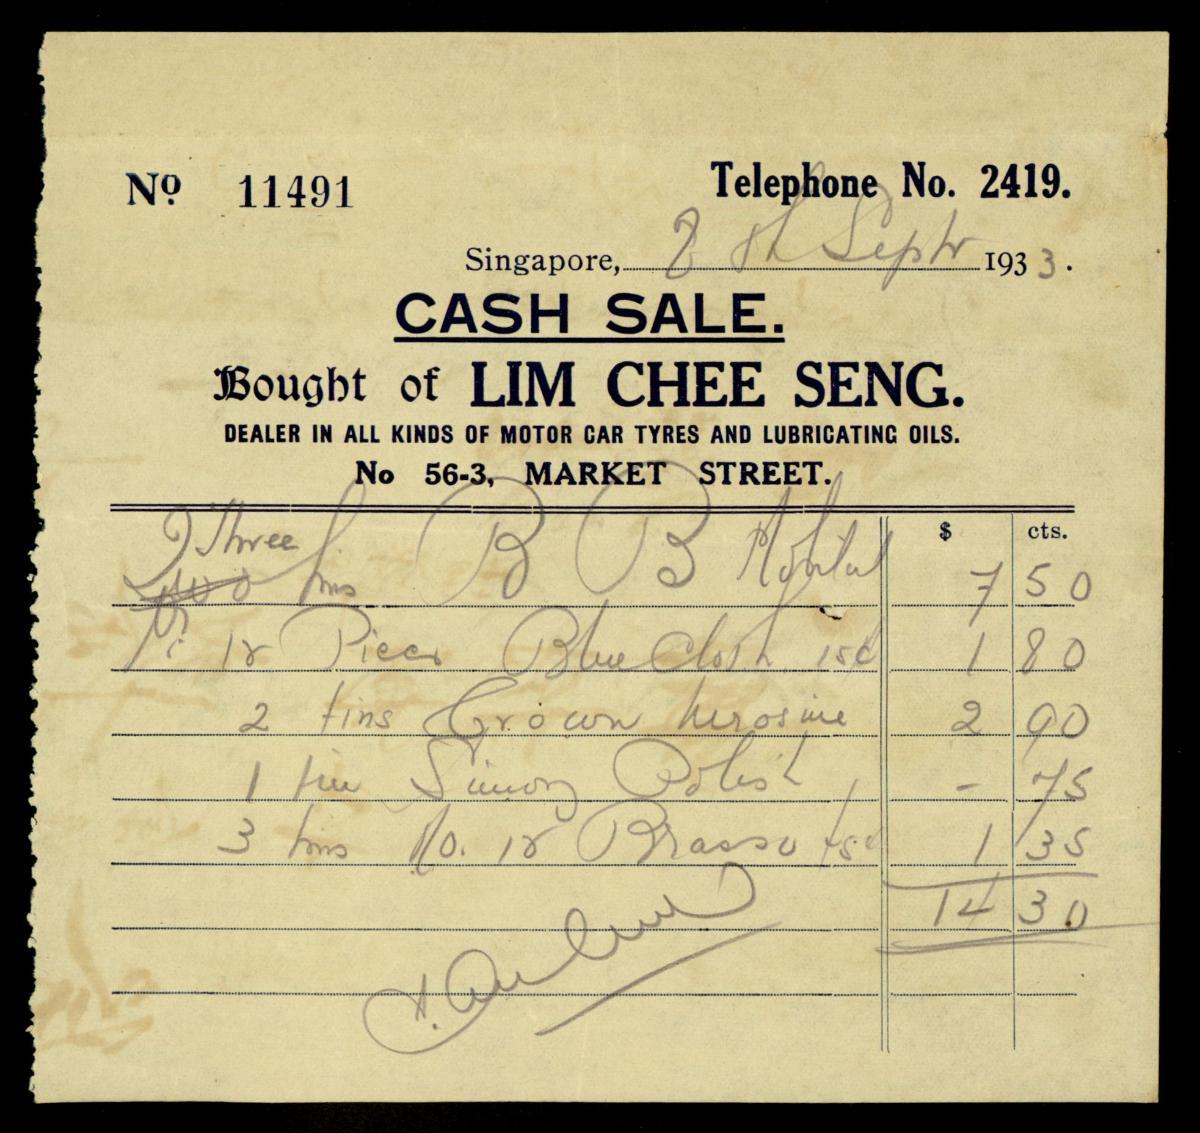 No 11491
Telephone No. 2419.
Singapore, 8th Septr 1933.
CASH SALE.
Bought of LIM CHEE SENG.
DEALER IN ALL KINDS OF MOTOR CAR TYRES AND LUBRICATING OILS.
No 56-3, MARKET STREET.
$ cts.
Three
two tins B B Mobiloil 7 50
12 Piece Blue Cloth 15c 1 80
2 tins Crown kerosine 2 90
1 tin Simonz Polish - 75
3 tins No. 12 Brasso 45c 1 35
14 30